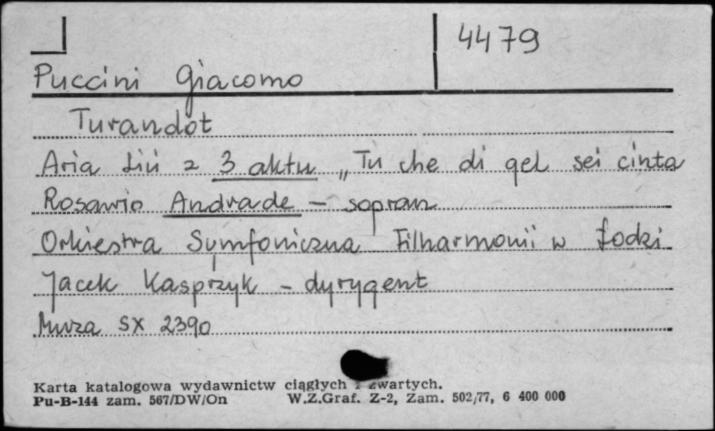 4479
Puccini Giacomo
Turandot
Aria Liù z 3 aktu „Tu che di gel sei cinta
Rosario Andrade – sopran
Orkiestra Symfoniczna Filharmonii w Łodzi
Jacek Kasprzyk – dyrygent
Muza SX 2390
Karta katalogowa wydawnictw ciągłych i zwartych.
Pu-B-144 zam. 567/DW/On W.Z.Graf. Z-2, Zam. 502/77, 6 400 000